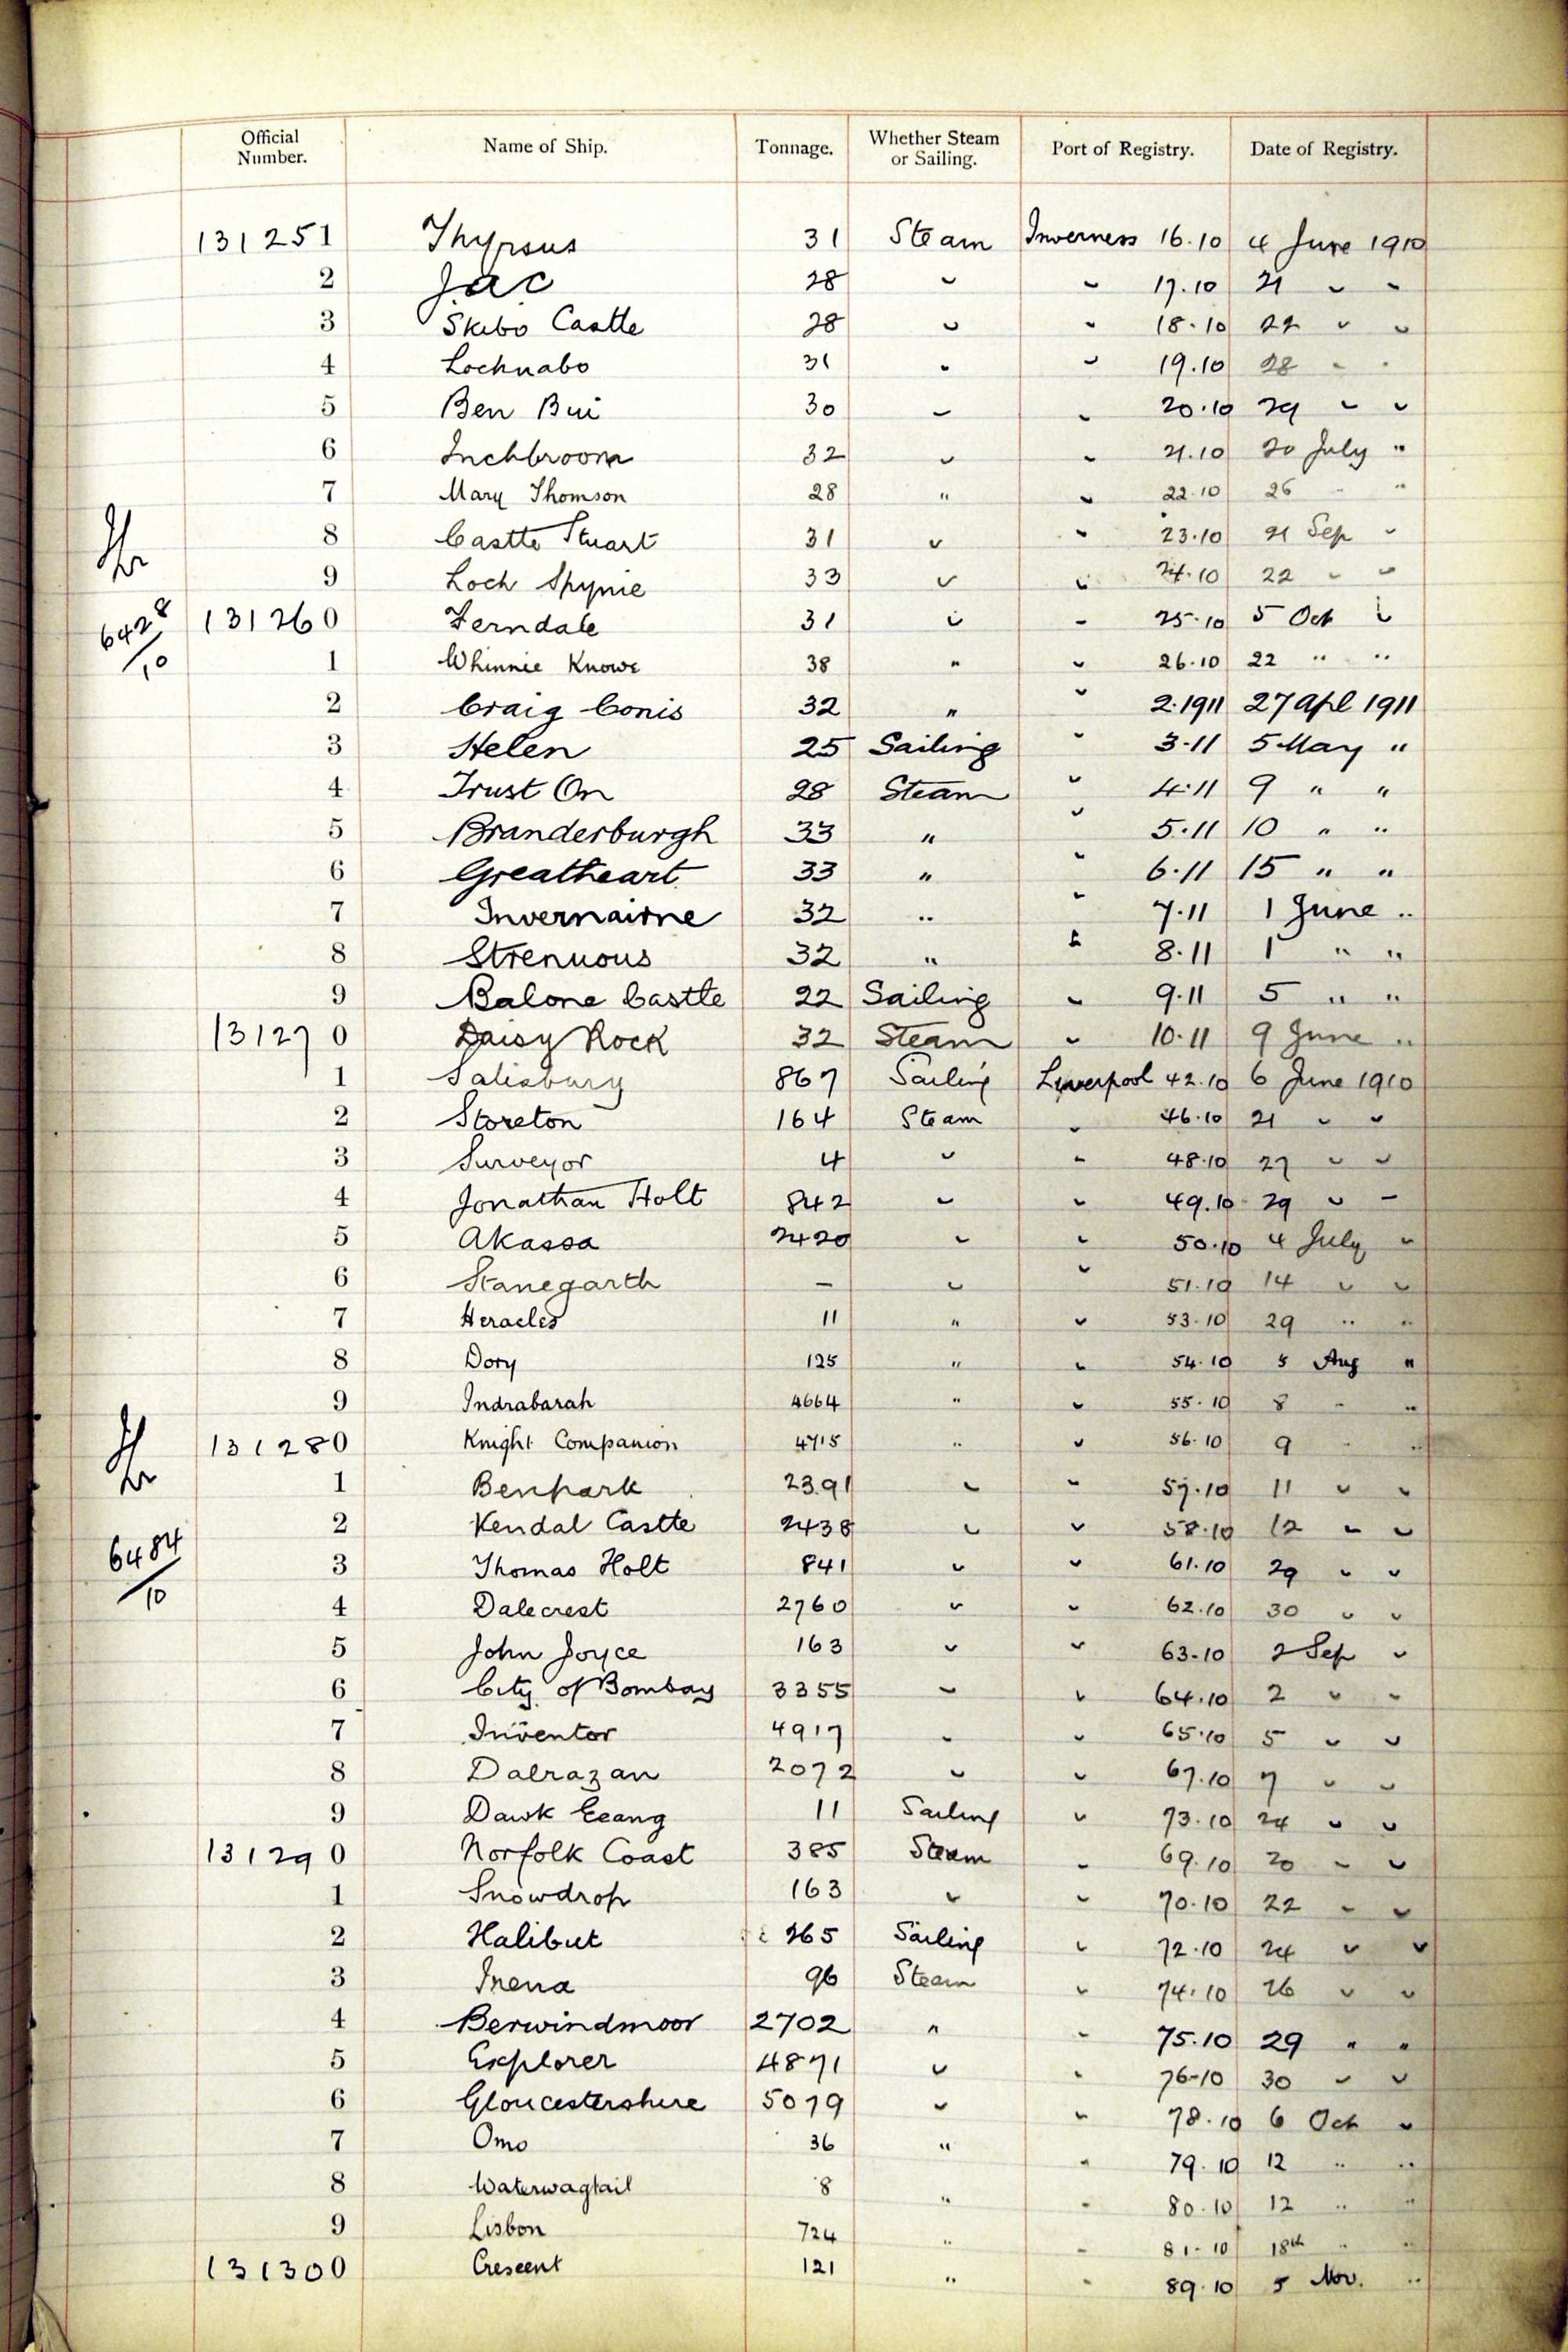 Official Number. Name of Ship. Tonnage. Whether Steam or Sailing. Port of Registry. Date of Registry.
131251 Thyrsus 31 Steam Inverness 16.10 4 June 1910
2 Jac 28 " " 17.10 21 " "
3 Skibo Castle 28 " " 18.10 22 " "
4 Lochnabo 31 " " 19.10 28 " "
5 Ben Bui 30 " " 20.10 29 " "
6 Inchbroom 32 " " 21.10 20 July "
7 Mary Thomson 28 " " 22.10 26 " "
8 Castle Stuart 31 " " 23.10 21 Sep "
9 Loch Spynie 33 " " 24.10 22 " "
6428/10 131260 Ferndale 31 " " 25.10 5 Oct "
1 Whinnie Knowe 38 " " 26.10 22 " "
2 Craig Conis 32 " " 2.1911 27 Apl 1911
3 Helen 25 Sailing " 3.11 5 May "
4 Trust On 28 Steam " 4.11 9 " "
5 Branderburgh 33 " " 5.11 10 " "
6 Greatheart 33 " " 6.11 15 " "
7 Invernairne 32 " " 7.11 1 June "
8 Strenuous 32 " " 8.11 1 " "
9 Balone Castle 22 Sailing " 9.11 5 " "
131270 Daisy Rock 32 Steam " 10.11 9 June "
1 Salisbury 867 Sailing Liverpool 42.10 6 June 1910
2 Storeton 164 Steam " 46.10 21 " "
3 Surveyor 4 " " 48.10 27 " "
4 Jonathan Holt 842 " " 49.10 29 " "
5 Akassa 2420 " " 50.10 4 July "
6 Stanegarth — " " 51.10 14 " "
7 Heracles 11 " " 53.10 29 " "
8 Dory 125 " " 54.10 5 Aug "
9 Indrabarah 4664 " " 55.10 8 " "
131280 Knight Companion 4715 " " 56.10 9 " "
1 Benpark 2391 " " 57.10 11 " "
2 Kendal Castle 2438 " " 58.10 12 " "
6484/10 3 Thomas Holt 841 " " 61.10 29 " "
4 Dalecrest 2760 " " 62.10 30 " "
5 John Joyce 163 " " 63.10 2 Sep "
6 City of Bombay 3355 " " 64.10 2 " "
7 Inventor 4917 " " 65.10 5 " "
8 Dalrazan 2072 " " 67.10 7 " "
9 Dawk Eeang 11 Sailing " 73.10 24 " "
131290 Norfolk Coast 385 Steam " 69.10 20 " "
1 Snowdrop 163 " " 70.10 22 " "
2 Halibut 265 Sailing " 72.10 24 " "
3 Irena 96 Steam " 74.10 26 " "
4 Berwindmoor 2702 " " 75.10 29 " "
5 Explorer 4871 " " 76-10 30 " "
6 Gloucestershire 5079 " " 78.10 6 Oct "
7 Omo 36 " " 79.10 12 " "
8 Waterwagtail 8 " " 80.10 12 " "
9 Lisbon 724 " " 81-10 18th " "
131300 Crescent 121 " " 89.10 5 Nov. "